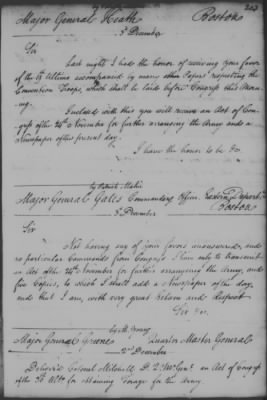 Major General Heath Boston
3d December
Sir
Last night I had the honor of receiving your favor
of the Ultimo accompanied by many other Papers respecting the
Convention Troops, which shall be laid before Congress this Morn-
ing.
Inclosed with this you will receive an Act of Con-
gress of the 24th November for further arranging the Army and a
Newspaper of this present day.
I have the honor to be &c
Major General Gates Commanding Officer Eastern Departmt
Boston
3d December
Sir
Not having any of your favors unanswered, and
no particular Commands from Congress I have only to transmit
an Act of the 24th November for further arranging the Army, and
five Copies, to which I shall add a Newspaper of the day,
and that I am, with very great Esteem and Respect
Sir &c.
by M. Young
Major General Greene Quarter Master General
2nd December
Deliver'd Colonel Mitchell D. Q. Mr Genl an Act of Congress
of the Ulto for obtaining Forage for the Army